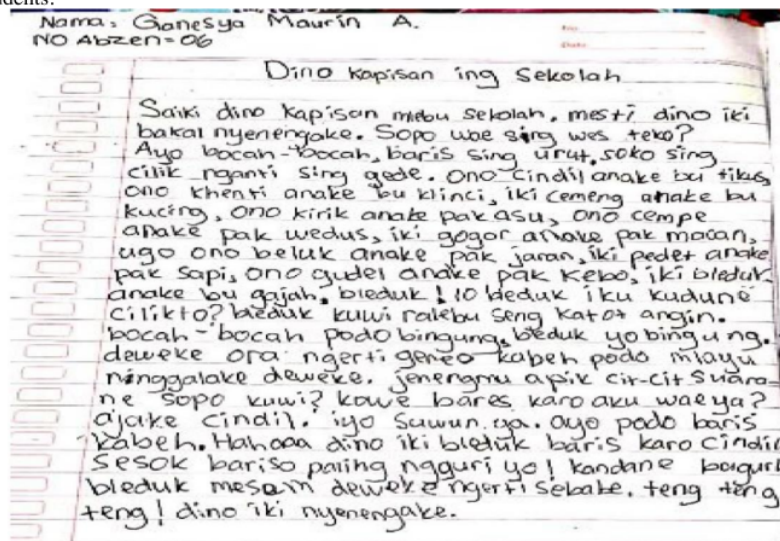 dents.
Nama: Ganesya Maurin A.
NO Abzen=06
Dino kapisan ing sekolah
Saiki dino kapisan mlebu sekolah. mesti dino iki
bakal nyenengake. Sopo wae sing wes teko?
Ayo bocah-bocah, baris sing urut, soko sing
cilik nganti sing gede. Ono cindil anake bu tikus,
ono khenti anake bu klinci, iki cemeng anake bu
kucing, ono kirik anake pak asu, ono cempe
anake pak wedus, iki gogor anake pak macan,
ugo ono beluk anake pak jaran, iki pedet anake
pak sapi, ono gudel anake pak kebo, iki bleduk
anake bu gajah. bleduk! lo bleduk iku kudune
cilikto? bleduk kuwi ralebu seng katot angin.
bocah-bocah podo bingung, bleduk yo bingung.
deweke ora ngerti geneo kabeh podo mlayu
ninggalake deweke. jenengmu apik cit-cit suara
ne sopo kuwi? kowe bares karo aku wae ya?
ajake cindil. iyo suwun ya. ayo podo baris
kabeh. Hahaaa dino iki bleduk baris karo cindil
sesok bariso paring ngguri yo! kandane
bleduk mesem deweke ngerti sebabe. teng teng
teng! dino iki nyenengake.